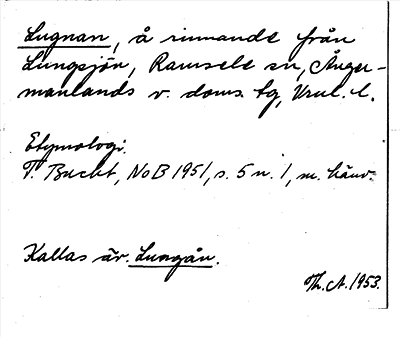 Lugnan, å rinnande från
Lungsjön, Ramsele sn, Ånger-
manlands v. doms. tg, Vnl. l.
Etymologi.
T. Bucht, NoB 1951, s. 5 n. 1, m. hänv.
Kallas äv. Lungån.
Th. A. 1953.